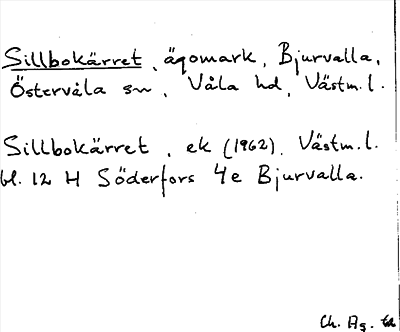 Sillbokärret, ägomark, Bjurvalla,
Östervåla sn, Våla hd, Västm.l.
Sillbokärret, ek (1962). Västm.l.
bl. 12 H Söderfors 4e Bjurvalla.
Ch. Ag.